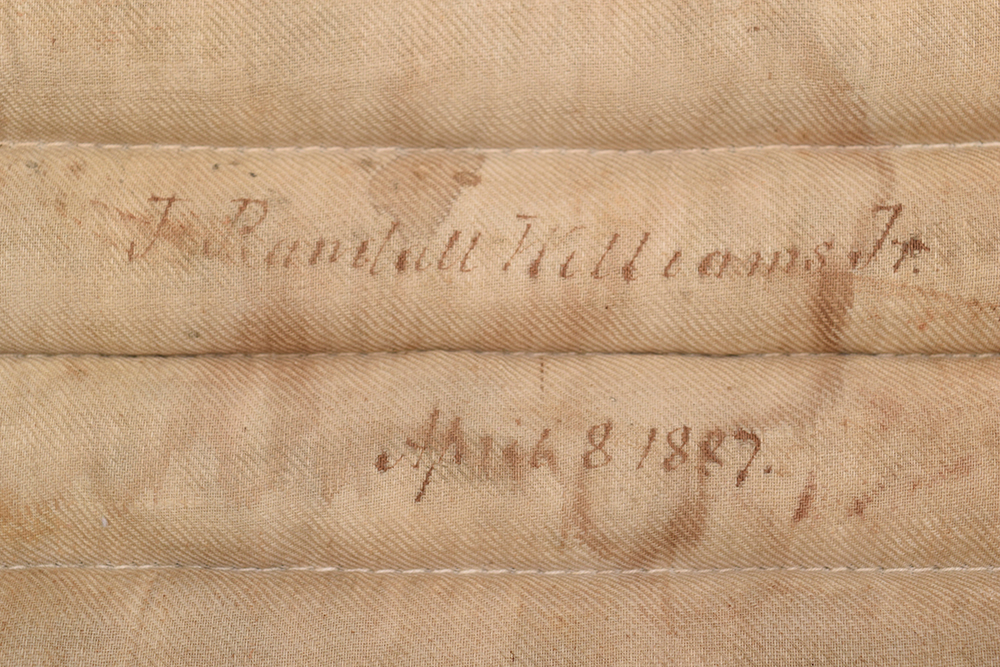 J Randall Williams Jr.
April 8 1887.